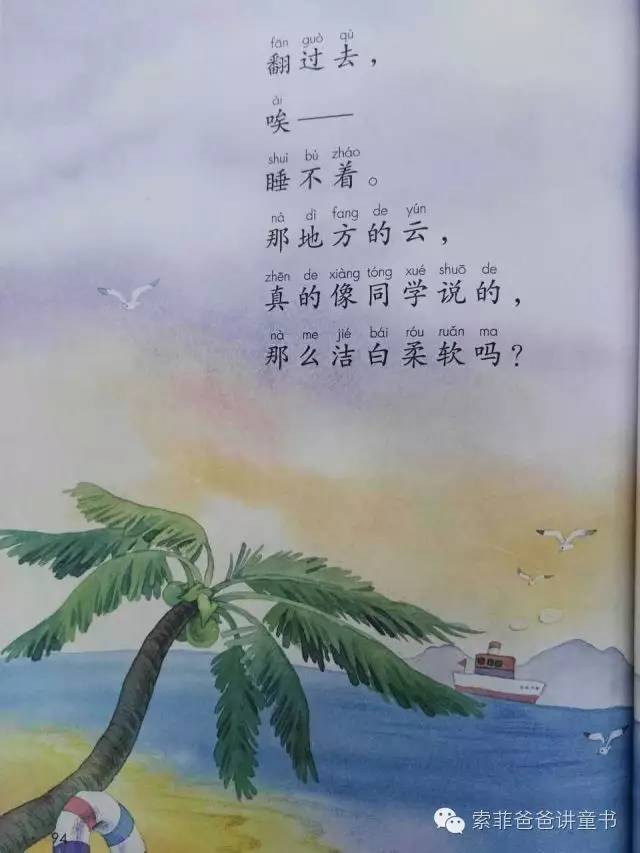 fān guò qù
翻过去，
āi
唉——
shuì bù zháo
睡不着。
nà dì fang de yún
那地方的云，
zhēn de xiàng tóng xué shuō de
真的像同学说的，
nà me jié bái róu ruǎn ma
那么洁白柔软吗？
94
索菲爸爸讲童书